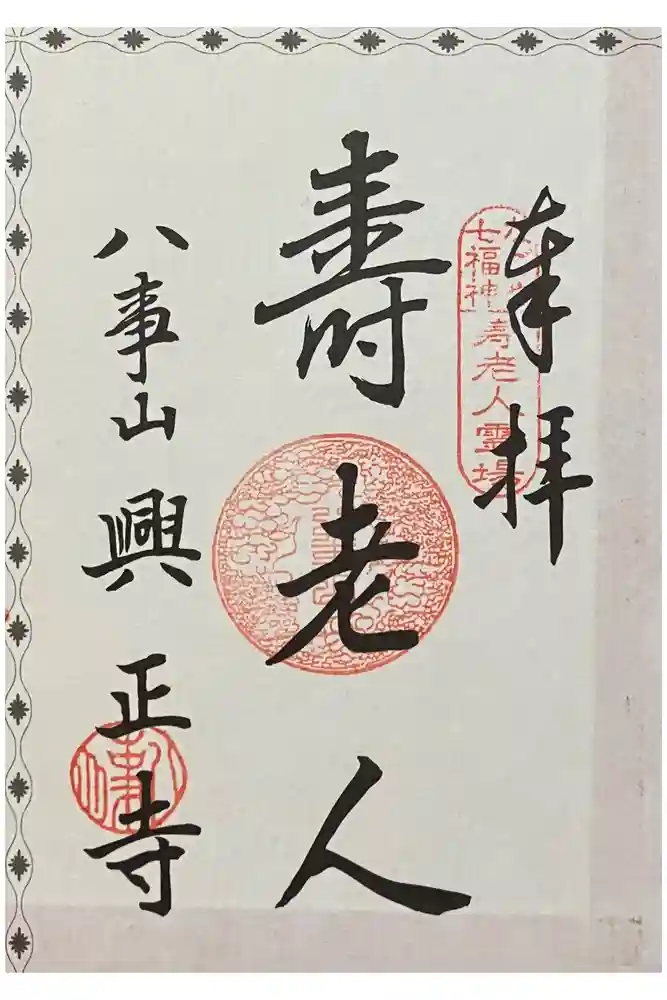 奉拝
七福神
寿老人霊場
壽老人
八事山興正寺
八事山